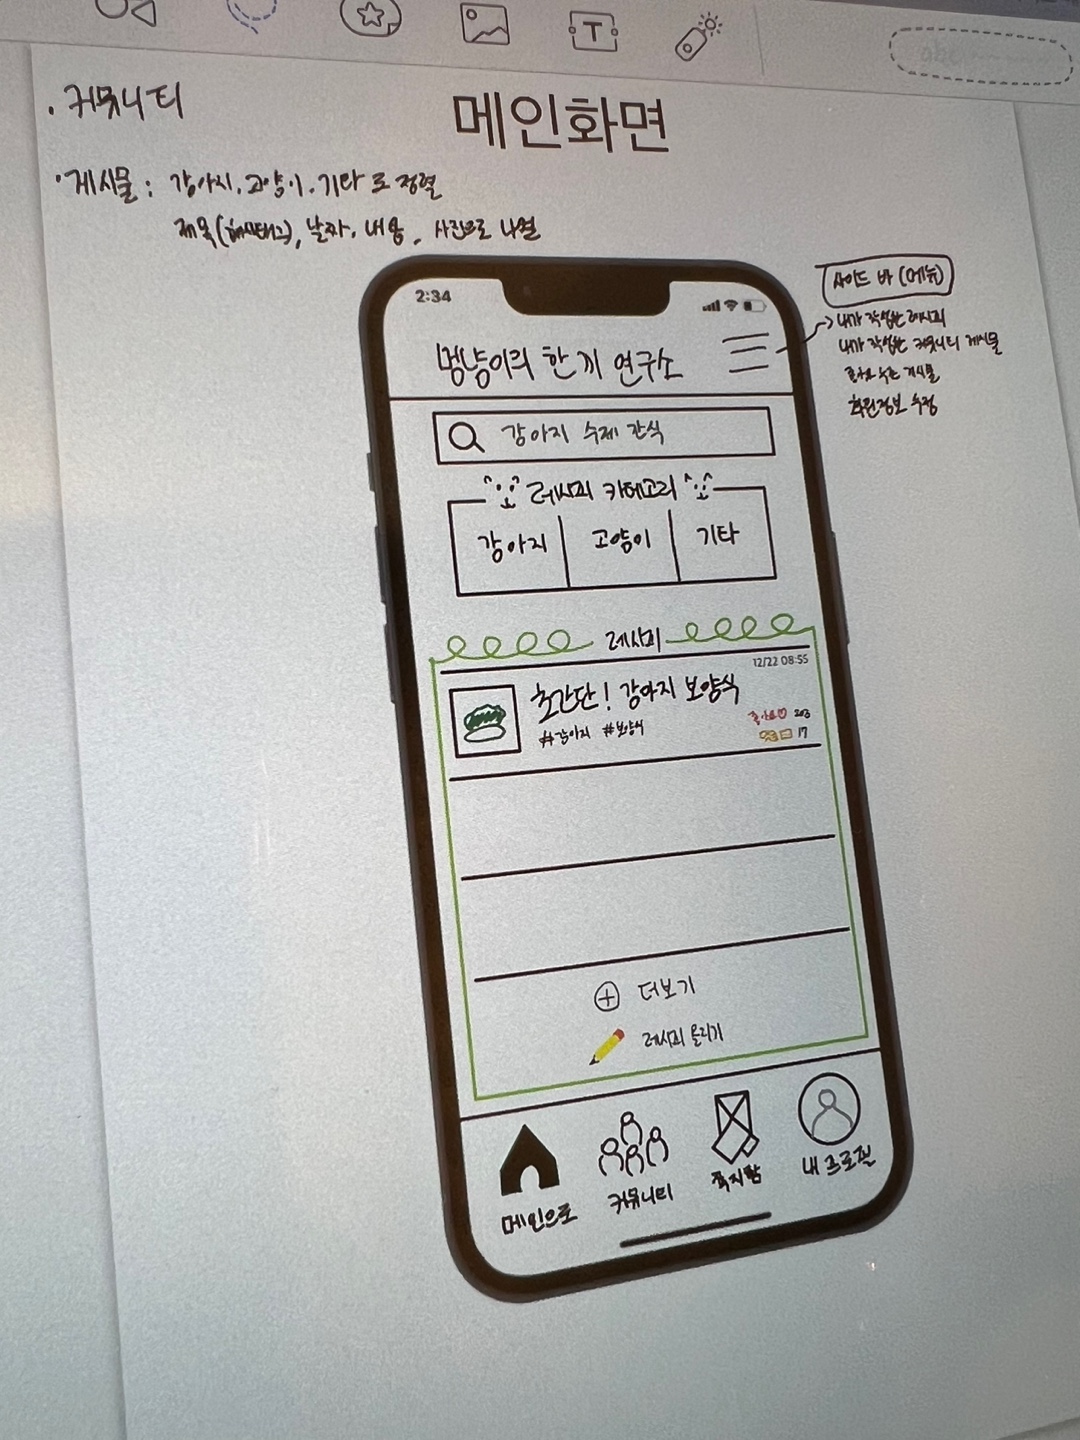 . 커뮤니티
메인화면
· 게시물 : 강아지, 고양이, 기타 로 정렬
제목(해시태그), 날짜, 내용, 사진으로 나열
사이드 바 (메뉴)
내가 작성한 레시피
내가 작성한 커뮤니티 게시물
좋아요 누른 게시물
회원정보 수정
2:34
멍냥이의 한 끼 연구소
강아지 수제 간식
레시피 카테고리
강아지 고양이 기타
레시피
12/22 08:55
초간단! 강아지 보양식
#강아지 #보양식
좋아요 203
17
더보기
레시피 올리기
메인으로 커뮤니티 쪽지함 내 프로필